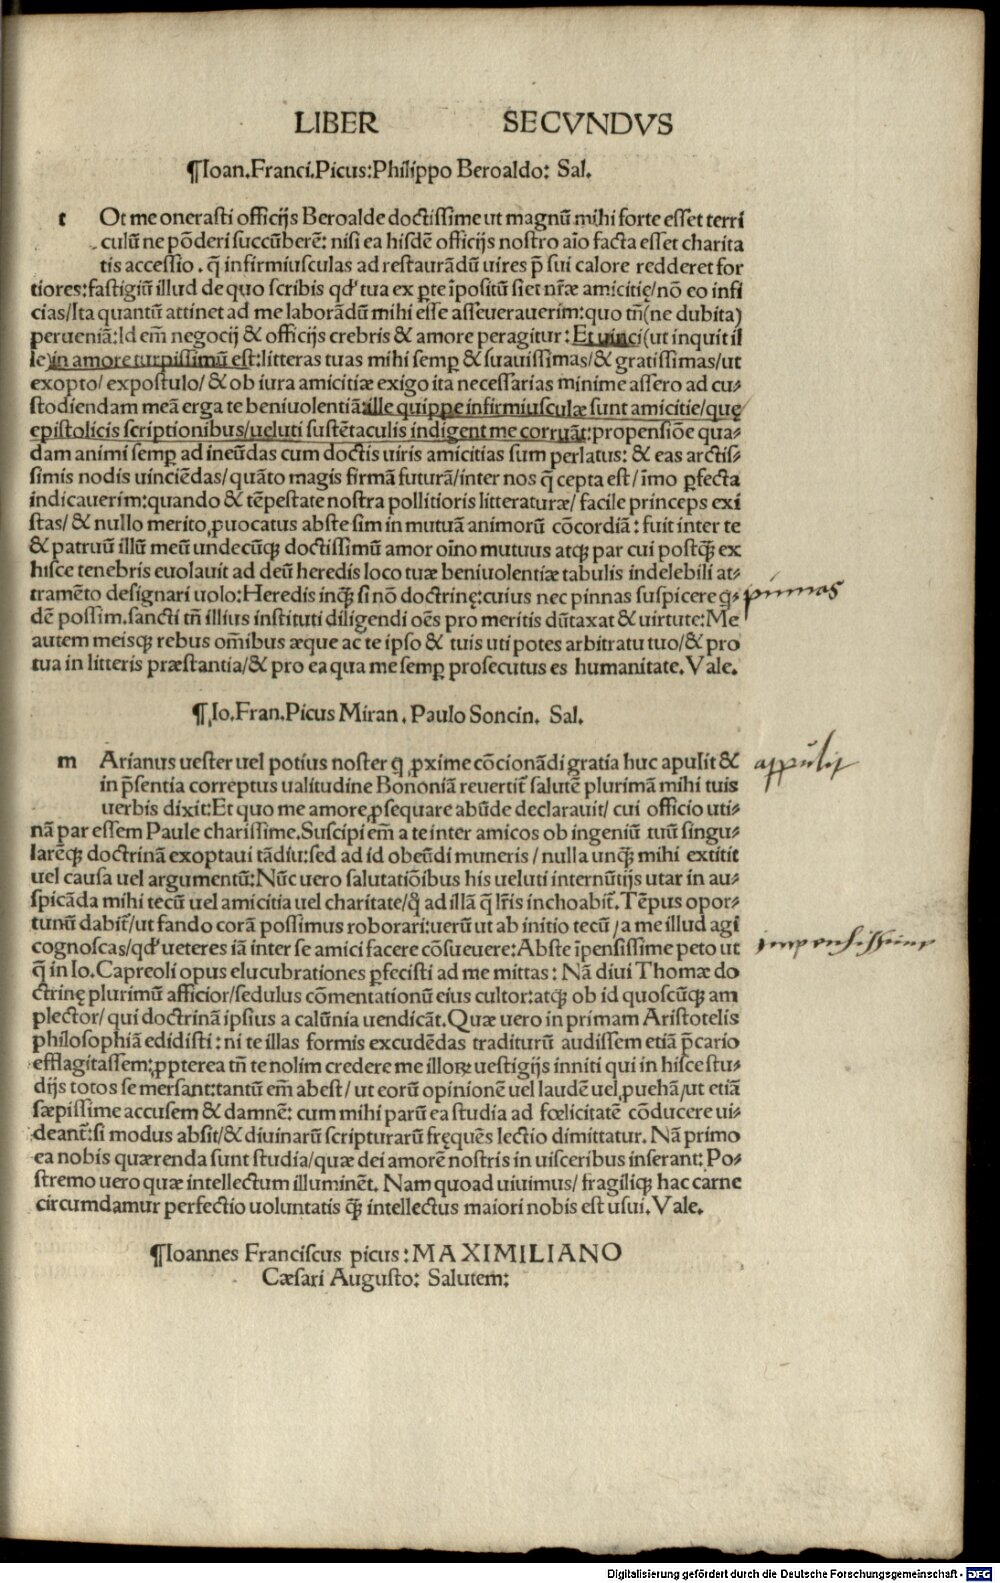 LIBER SECVNDVS
¶Ioan.Franci.Picus:Philippo Beroaldo: Sal.
t Ot me onerasti officijs Beroalde doctissime ut magnū mihi forte esset terri
culū ne põderi succũberē: nisi ea hisdē officijs nostro aīo facta esset charita
tis accessio. q̄ infirmiusculas ad restaurādū uires p̄ sui calore redderet for
tiores:fastigiū illud de quo scribis qđ tua ex ꝑte īpositū siet nr̄æ amicitię/nō eo infi
cias/Ita quantū attinet ad me laborādū mihi esse asseuerauerim:quo tm̄(ne dubita)
perueniā:Id em̄ negocij & officijs crebris & amore peragitur: Et uinci(ut inquit il
le)in amore turpissimū est:litteras tuas mihi semꝑ & suauissimas/& gratissimas/ut
exopto/ expostulo/ & ob iura amicitiæ exigo ita necessarias minime assero ad cu-
stodiendam meā erga te beniuolentiā:ille quippe infirmiusculæ sunt amicitie/quę
epistolicis scriptionibus/ueluti sustētaculis indigent me corruāt:propensiõe qua-
dam animi semꝑ ad ineūdas cum doctis uiris amicitias sum perlatus: & eas arctis-
simis nodis uinciēdas/quāto magis firmā futurā/inter nos q̄ cepta est/ īmo ꝑfecta
indicauerim:quando & tēpestate nostra pollitioris litteraturæ/ facile princeps exi
stas/ & nullo merito ꝓuocatus abste sim in mutuā animorū cõcordiā: fuit inter te
& patruū illū meū undecūqꝫ doctissimū amor oīno mutuus atqꝫ par cui postq̄ꝫ ex
hisce tenebris euolauit ad deū heredis loco tuæ beniuolentiæ tabulis indelebili at-
tramēto designari uolo:Heredis inq̄ꝫ si nō doctrinę:cuius nec pinnas suspicere q̨-
dē possim.sancti tn̄ illius instituti diligendi oēs pro meritis dūtaxat & uirtute:Me
autem meisqꝫ rebus om̄ibus æque ac te ipso & tuis uti potes arbitratu tuo/& pro
tua in litteris præstantia/& pro ea qua me semꝑ prosecutus es humanitate.Vale.
pinnas
¶Io.Fran.Picus Miran. Paulo Soncin. Sal.
m Arianus uester uel potius noster q̨ ꝓxime cõcionādi gratia huc apulit &
in p̄sentia correptus ualitudine Bononiā reuertit̄ salutē plurimā mihi tuis
uerbis dixit:Et quo me amore ꝓsequare abūde declarauit/ cui officio uti-
nā par essem Paule charissime.Suscipi em̄ a te inter amicos ob ingeniū tuū singu-
larēqꝫ doctrinā exoptaui tādiu:sed ad id obeūdi muneris / nulla unq̄ꝫ mihi extitit
uel causa uel argumentū:Nūc uero salutatiõibus his ueluti internūtijs utar in au-
spicāda mihi tecū uel amicitia uel charitate/q̨̄ ad illā q̄ lr̄is inchoabit̄.Tēpus opor-
tunū dabit̄/ut fando corā possimus roborari:uerū ut ab initio tecū/a me illud agi
cognoscas/qđ ueteres iā inter se amici facere cõsueuere:Abste īpensissime peto ut
q̄ in Io.Capreoli opus elucubrationes ꝑfecisti ad me mittas: Nā diui Thomæ do
ctrinę plurimū afficior/sedulus cõmentationū eius cultor:atqꝫ ob id quoscūqꝫ am
plector/ qui doctrinā ipsius a calūnia uendicāt.Quæ uero in primam Aristotelis
philosophiā edidisti: ni te illas formis excudēdas traditurū audissem etiā p̄cario
efflagitassem:ꝓpterea tn̄ te nolim credere me illoꝝ uestigijs inniti qui in hisce stu-
dijs totos se mersant:tantū em̄ abest / ut eorū opinionē uel laudē uel ꝓuehā/ut etiā
sæpissime accusem & damnē: cum mihi parū ea studia ad fœlicitatē cõducere ui-
deant̄:si modus absit/& diuinarū scripturarū fręquēs lectio dimittatur. Nā primo
ea nobis quærenda sunt studia/quæ dei amorē nostris in uisceribus inserant: Po-
stremo uero quæ intellectum illuminēt. Nam quoad uiuimus/ fragiliqꝫ hac carne
circumdamur perfectio uoluntatis q̄ꝫ intellectus maiori nobis est usui.Vale.
appulit
impensissime
¶Ioannes Franciscus picus: MAXIMILIANO
Cæsari Augusto: Salutem:
Digitalisierung gefördert durch die Deutsche Forschungsgemeinschaft - DFG